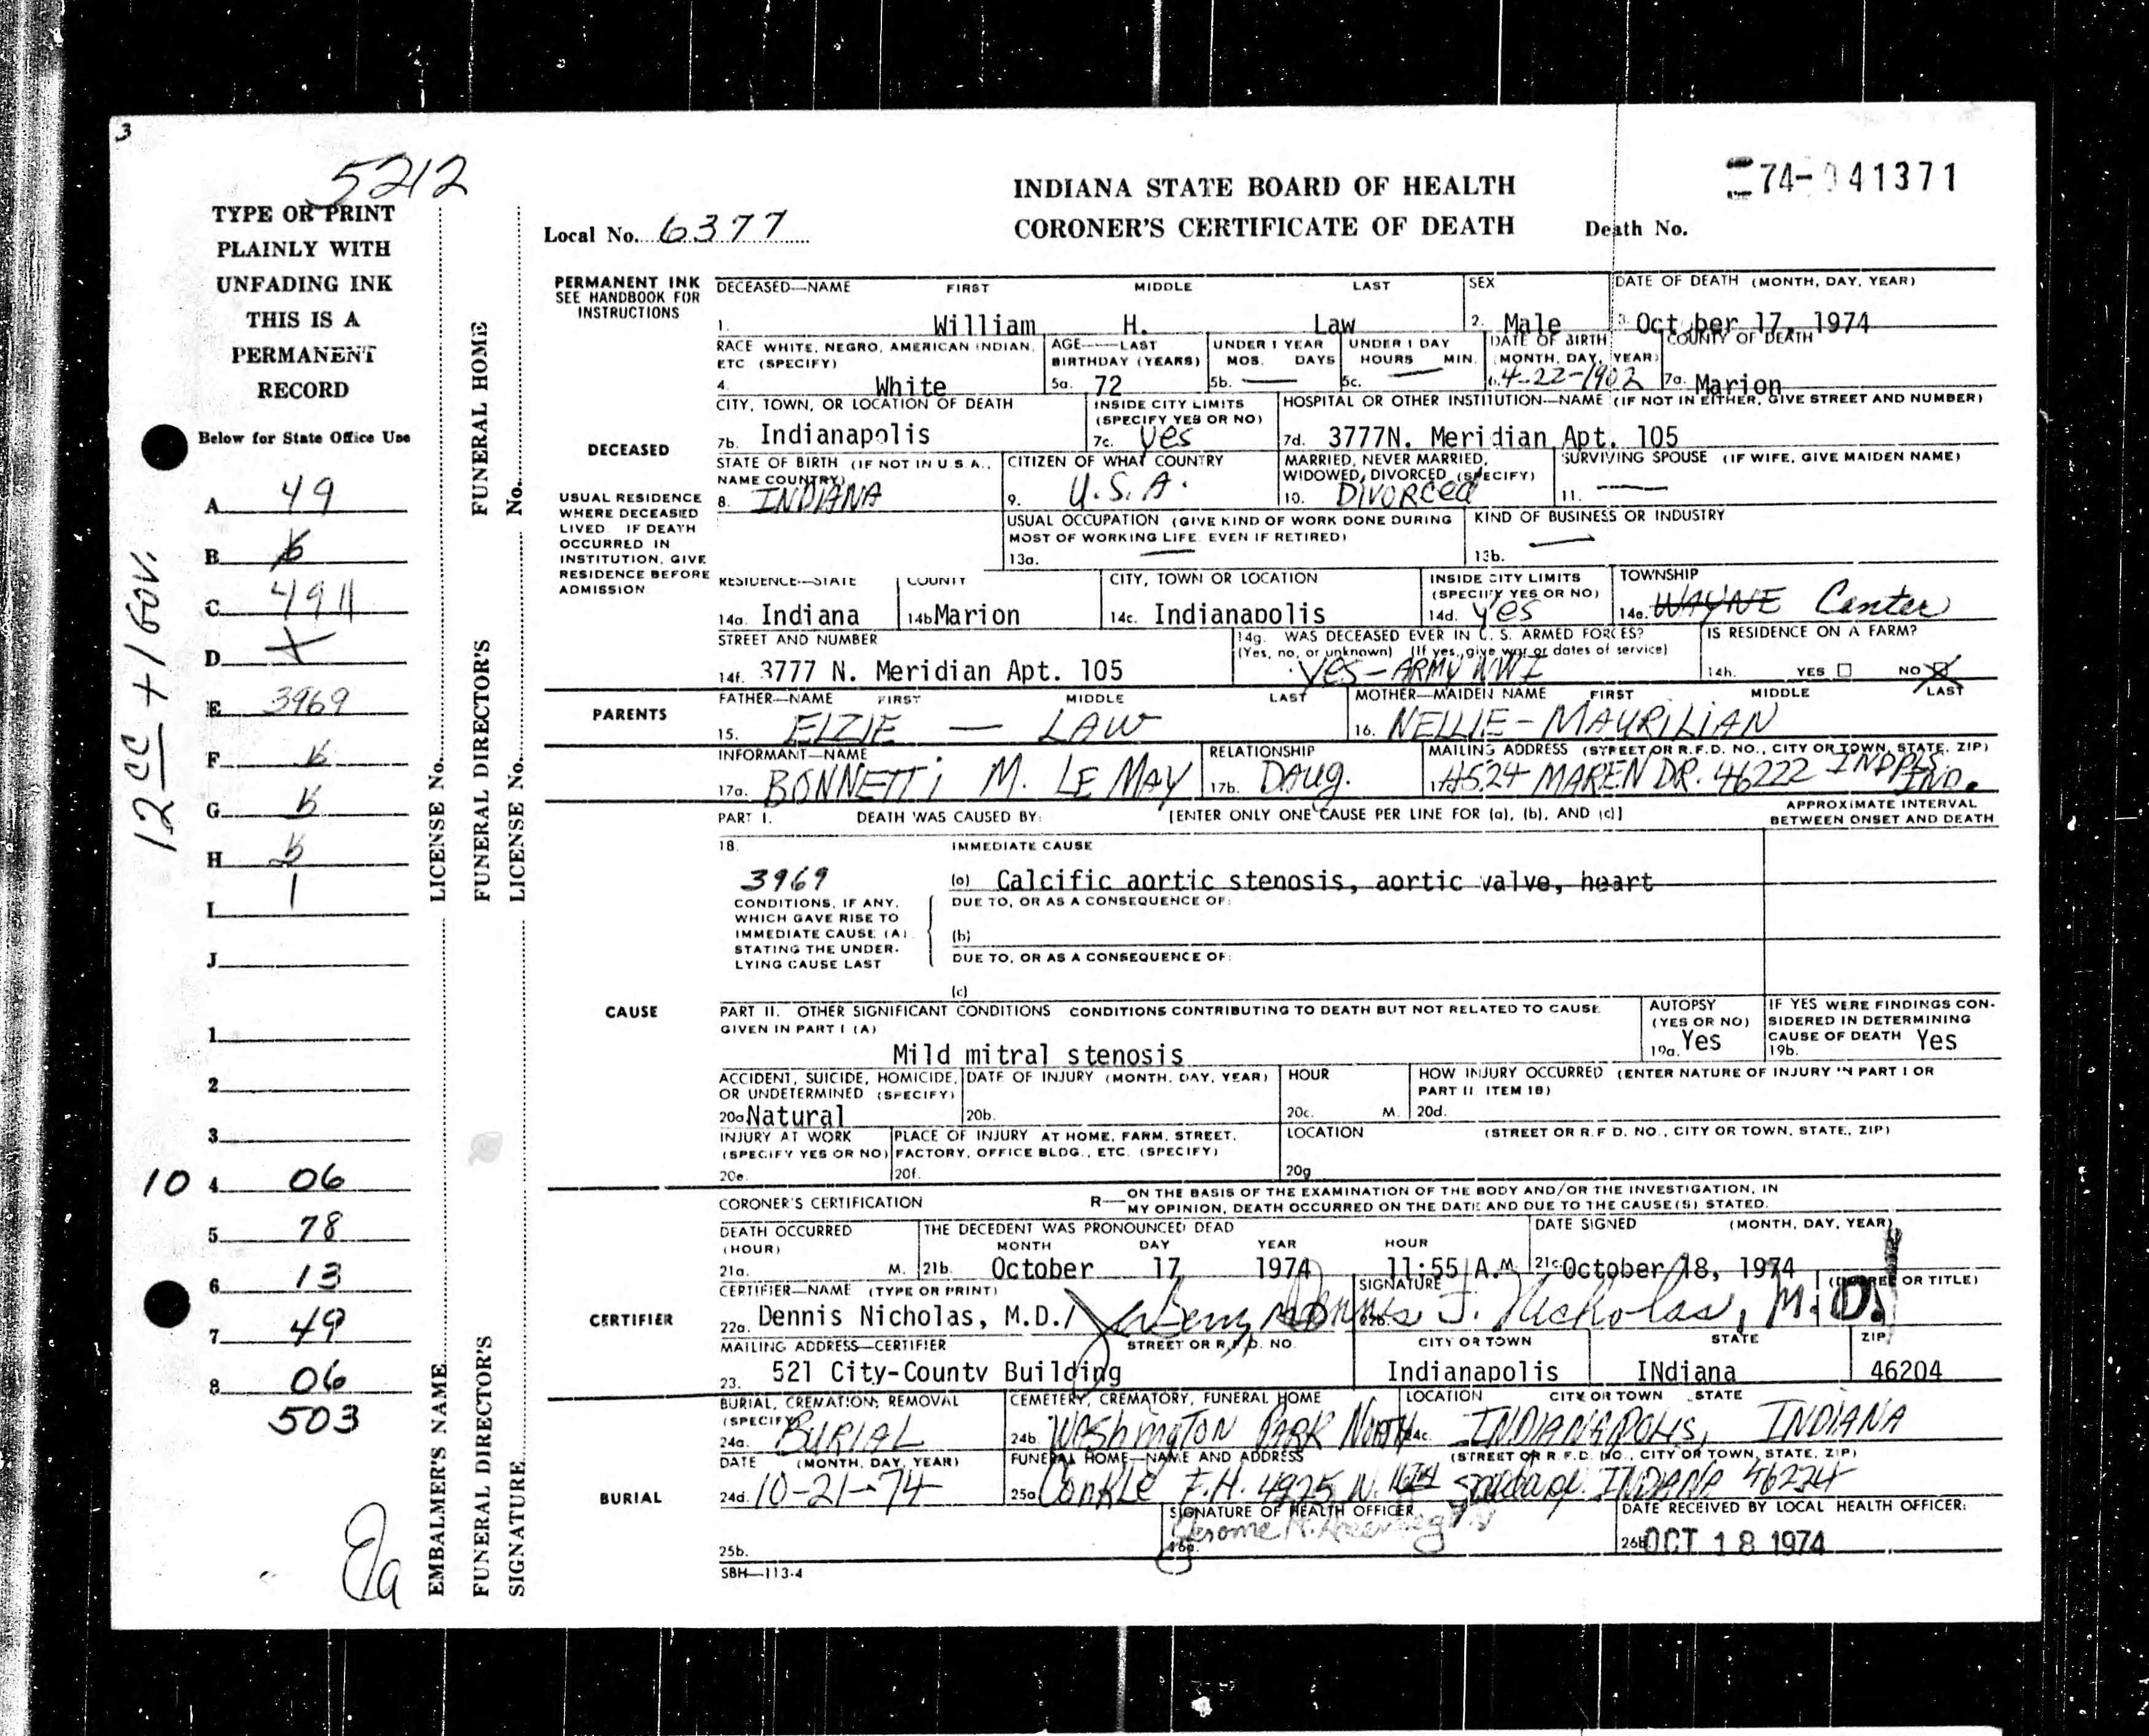 3
5212
TYPE OR PRINT
PLAINLY WITH
UNFADING INK
THIS IS A
PERMANENT
RECORD
Below for State Office Use
A 49
B
C 4911
D
E 3969
F
G
H
I 1
J
1
2
3
10 4 06
5 78
6 13
7 49
8 06
503
12 CC + 1 GOV.
EMBALMER'S NAME LICENSE No.
FUNERAL DIRECTOR'S FUNERAL DIRECTOR'S FUNERAL HOME
SIGNATURE LICENSE No. No.
INDIANA STATE BOARD OF HEALTH
CORONER'S CERTIFICATE OF DEATH
74-041371
Local No. 6377
Death No.
PERMANENT INK
SEE HANDBOOK FOR
INSTRUCTIONS
DECEASED—NAME FIRST MIDDLE LAST SEX DATE OF DEATH (MONTH, DAY, YEAR)
1. William H. Law 2. Male 3. October 17, 1974
RACE WHITE, NEGRO, AMERICAN INDIAN, AGE—LAST UNDER 1 YEAR UNDER 1 DAY DATE OF BIRTH COUNTY OF DEATH
ETC (SPECIFY) BIRTHDAY (YEARS) MOS. DAYS HOURS MIN. (MONTH, DAY, YEAR)
4. White 5a. 72 5b. — 5c. — 6. 4-22-1902 7a. Marion
CITY, TOWN, OR LOCATION OF DEATH INSIDE CITY LIMITS HOSPITAL OR OTHER INSTITUTION—NAME (IF NOT IN EITHER, GIVE STREET AND NUMBER)
(SPECIFY YES OR NO)
7b. Indianapolis 7c. yes 7d. 3777N. Meridian Apt. 105
DECEASED
STATE OF BIRTH (IF NOT IN U.S.A., CITIZEN OF WHAT COUNTRY MARRIED, NEVER MARRIED, SURVIVING SPOUSE (IF WIFE, GIVE MAIDEN NAME)
NAME COUNTRY) WIDOWED, DIVORCED (SPECIFY)
8. INDIANA 9. U.S.A. 10. DIVORCED 11. —
USUAL RESIDENCE
WHERE DECEASED
LIVED IF DEATH
OCCURRED IN
INSTITUTION, GIVE
RESIDENCE BEFORE
ADMISSION
USUAL OCCUPATION (GIVE KIND OF WORK DONE DURING KIND OF BUSINESS OR INDUSTRY
MOST OF WORKING LIFE, EVEN IF RETIRED)
13a. — 13b. —
RESIDENCE—STATE COUNTY CITY, TOWN OR LOCATION INSIDE CITY LIMITS TOWNSHIP
(SPECIFY YES OR NO)
14a. Indiana 14b Marion 14c. Indianapolis 14d. yes 14e. WAYNE Center
STREET AND NUMBER 14g. WAS DECEASED EVER IN U. S. ARMED FORCES? IS RESIDENCE ON A FARM?
(Yes, no, or unknown) (If yes, give war or dates of service)
14f. 3777 N. Meridian Apt. 105 YES-ARMY WWI 14h. YES NO
PARENTS
FATHER—NAME FIRST MIDDLE LAST MOTHER—MAIDEN NAME FIRST MIDDLE LAST
15. ELZIE — LAW 16. NELLIE - MAURILIAN
INFORMANT—NAME RELATIONSHIP MAILING ADDRESS (STREET OR R.F.D. NO., CITY OR TOWN, STATE, ZIP)
17a. BONNETTI M. LE MAY 17b. DAUG. 17c 4524 MAREN DR. 46222 INDPLS. IND.
PART I. DEATH WAS CAUSED BY: [ENTER ONLY ONE CAUSE PER LINE FOR (a), (b), AND (c)] APPROXIMATE INTERVAL
BETWEEN ONSET AND DEATH
18. IMMEDIATE CAUSE
3969 (a) Calcific aortic stenosis, aortic valve, heart
CONDITIONS, IF ANY, DUE TO, OR AS A CONSEQUENCE OF:
WHICH GAVE RISE TO
IMMEDIATE CAUSE (A) (b)
STATING THE UNDER-
LYING CAUSE LAST DUE TO, OR AS A CONSEQUENCE OF:
(c)
CAUSE
PART II. OTHER SIGNIFICANT CONDITIONS CONDITIONS CONTRIBUTING TO DEATH BUT NOT RELATED TO CAUSE AUTOPSY IF YES WERE FINDINGS CON-
GIVEN IN PART I (A) (YES OR NO) SIDERED IN DETERMINING
CAUSE OF DEATH
Mild mitral stenosis 19a. Yes 19b. Yes
ACCIDENT, SUICIDE, HOMICIDE, DATE OF INJURY (MONTH, DAY, YEAR) HOUR HOW INJURY OCCURRED (ENTER NATURE OF INJURY IN PART I OR
OR UNDETERMINED (SPECIFY) PART II ITEM 18)
20a Natural 20b. 20c. M. 20d.
INJURY AT WORK PLACE OF INJURY AT HOME, FARM, STREET, LOCATION (STREET OR R.F.D. NO., CITY OR TOWN, STATE, ZIP)
(SPECIFY YES OR NO) FACTORY, OFFICE BLDG., ETC. (SPECIFY)
20e. 20f. 20g
CORONER'S CERTIFICATION R— ON THE BASIS OF THE EXAMINATION OF THE BODY AND/OR THE INVESTIGATION, IN
MY OPINION, DEATH OCCURRED ON THE DATE AND DUE TO THE CAUSE(S) STATED.
DEATH OCCURRED THE DECEDENT WAS PRONOUNCED DEAD DATE SIGNED (MONTH, DAY, YEAR)
(HOUR) MONTH DAY YEAR HOUR
21a. M. 21b. October 17 1974 11:55 A.M. 21c October 18, 1974
CERTIFIER
CERTIFIER—NAME (TYPE OR PRINT) SIGNATURE (DEGREE OR TITLE)
22a. Dennis Nicholas, M.D./ Dennis J. Nicholas, M.D.
MAILING ADDRESS—CERTIFIER STREET OR R.F.D. NO. CITY OR TOWN STATE ZIP
23. 521 City-County Building Indianapolis INdiana 46204
BURIAL
BURIAL, CREMATION, REMOVAL CEMETERY, CREMATORY, FUNERAL HOME LOCATION CITY OR TOWN STATE
(SPECIFY)
24a. BURIAL 24b. WAShington PARK North 24c. INDIANAPOLIS, INDIANA
DATE (MONTH, DAY, YEAR) FUNERAL HOME—NAME AND ADDRESS (STREET OR R.F.D. NO., CITY OR TOWN, STATE, ZIP)
24d. 10-21-74 25a Conkle F.H. 4925 W. 16th St Speedway INDIANA 46224
SIGNATURE OF HEALTH OFFICER DATE RECEIVED BY LOCAL HEALTH OFFICER:
25b. 26a. 26b OCT 18 1974
SBH—113-4